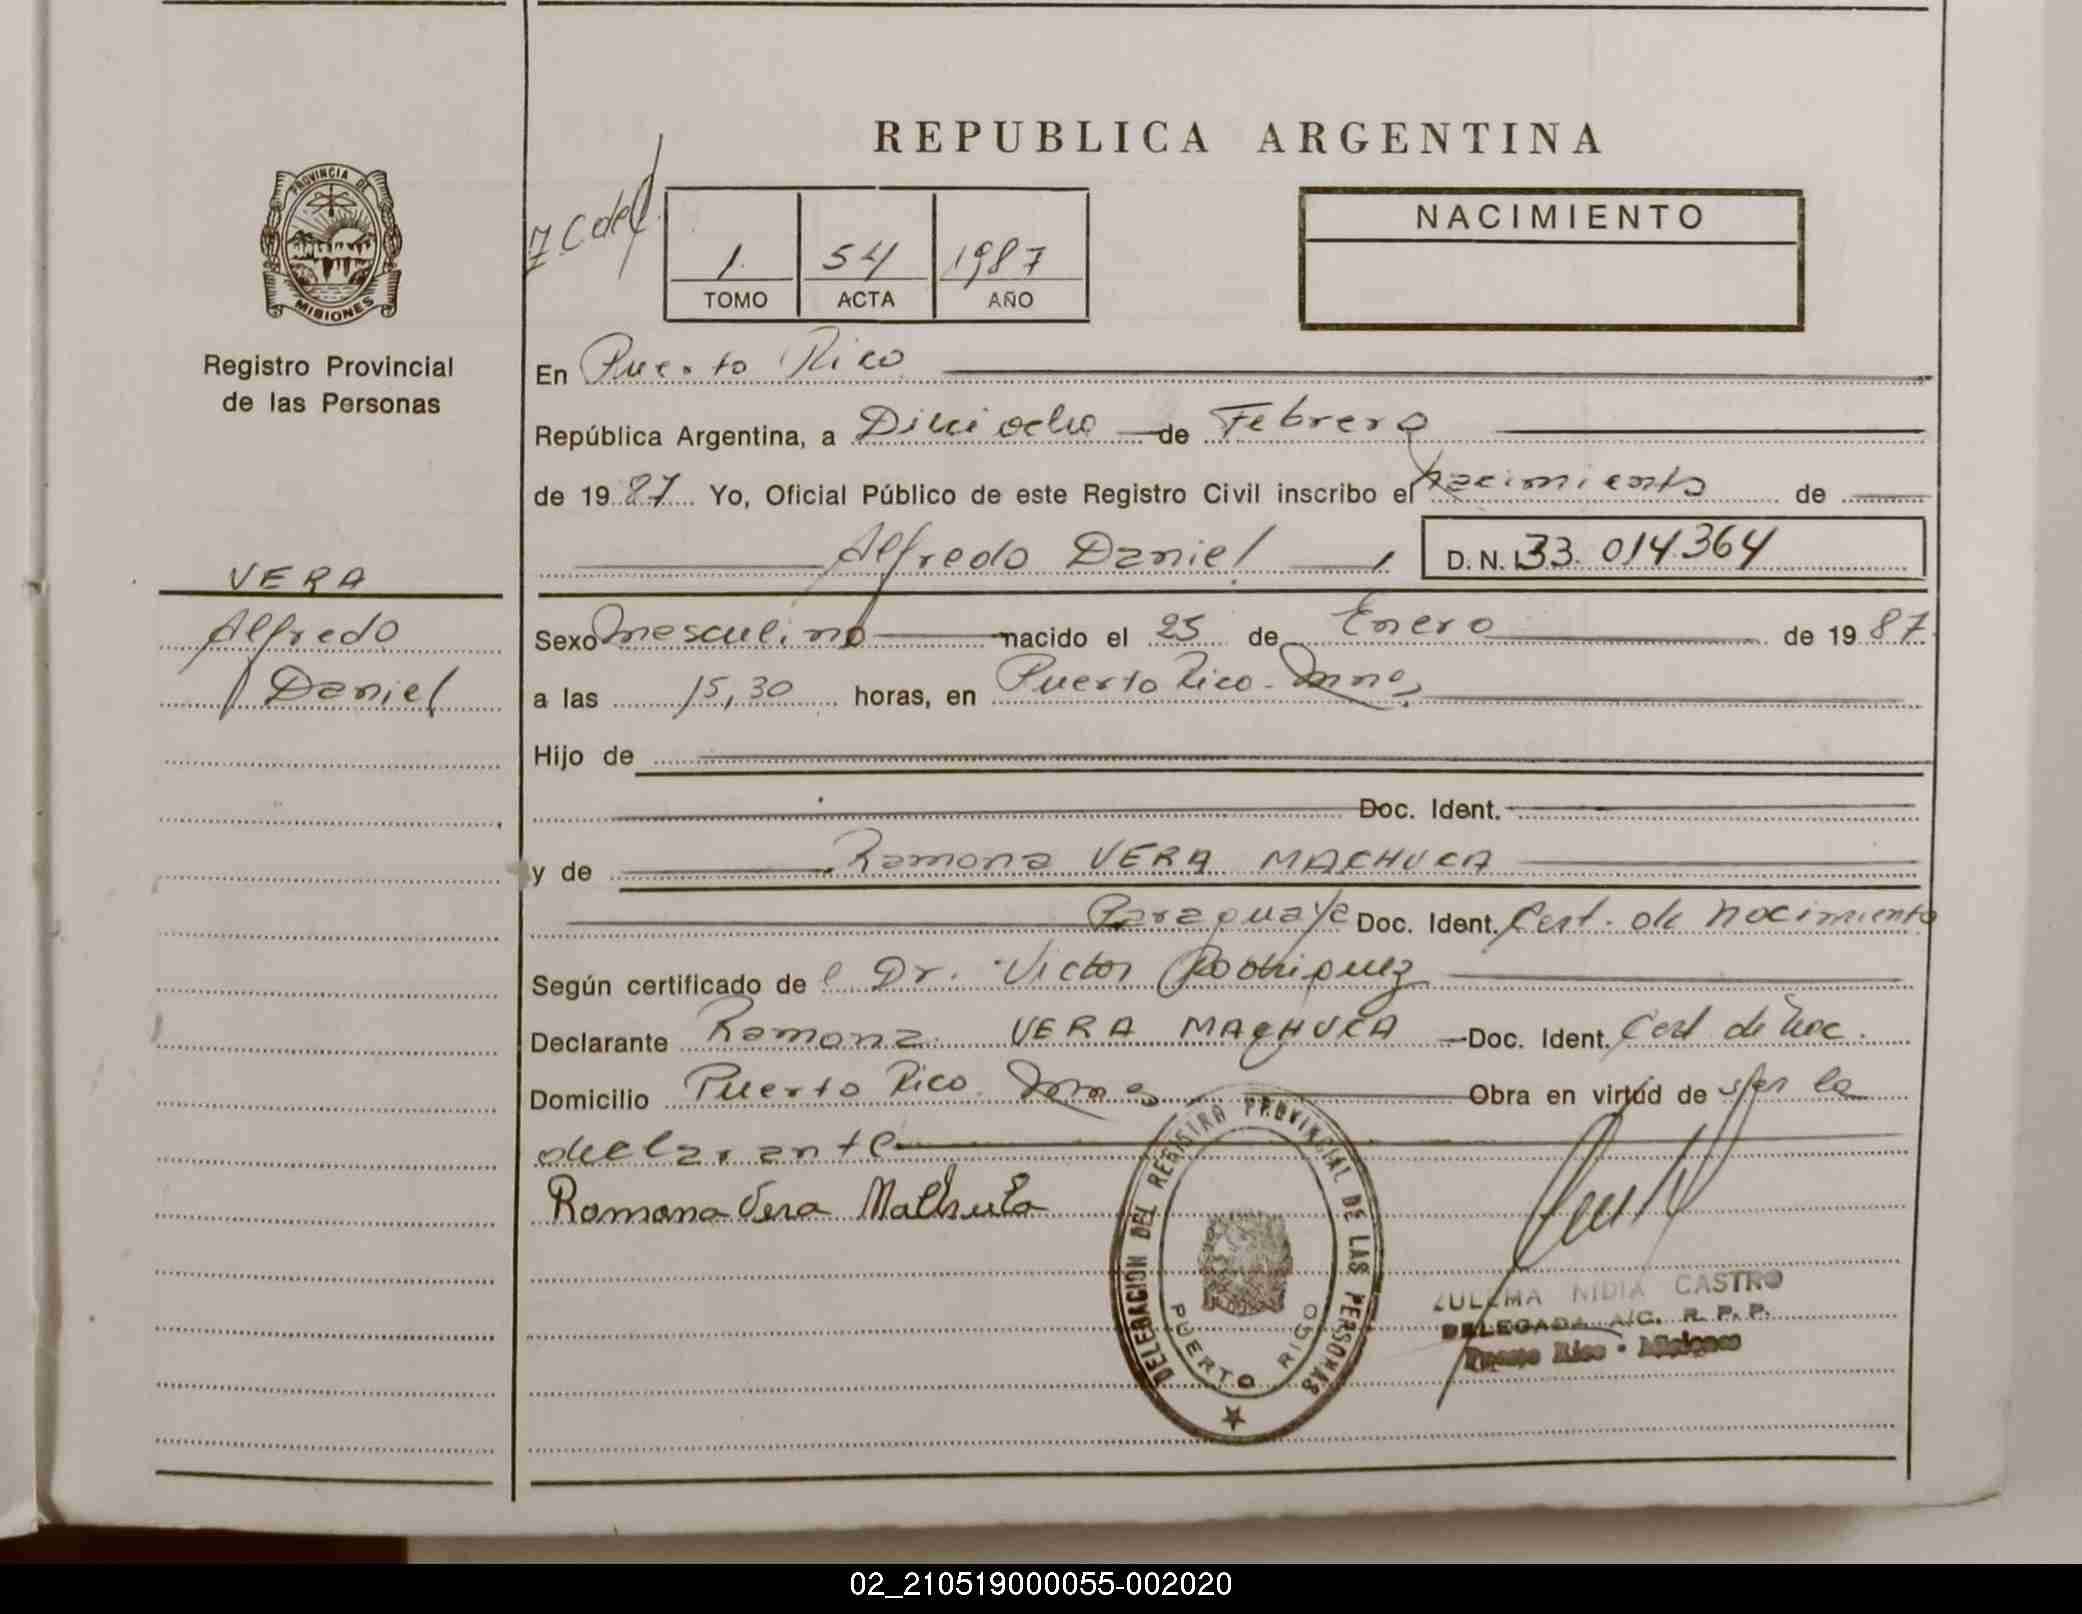 REPUBLICA ARGENTINA
PROVINCIA DE
MISIONES
Registro Provincial
de las Personas
1 54 1987
TOMO ACTA AÑO
NACIMIENTO
En Puerto Rico
República Argentina, a Dieciocho de Febrero
de 1987 Yo, Oficial Público de este Registro Civil inscribo el nacimiento de
Alfredo Daniel D.N.I. 33.014.364
VERA
Alfredo
Daniel
Sexo masculino nacido el 25 de Enero de 1987
a las 15,30 horas, en Puerto Rico - Mnes
Hijo de
Doc. Ident.
y de Ramona VERA MACHUCA
Paraguaya Doc. Ident. Cert. de nacimiento
Según certificado de l Dr. Victor Rodriguez
Declarante Ramona VERA MACHUCA Doc. Ident. Cert de nac.
Domicilio Puerto Rico Mnes Obra en virtud de ser la
declarante
Ramona Vera Mathuca
DELEGACION DEL REGISTRO PROVINCIAL DE LAS PERSONAS
PUERTO RICO
ZULEMA NIDIA CASTRO
DELEGADA A/C. R. P. P.
Puerto Rico - Misiones
02_210519000055-002020